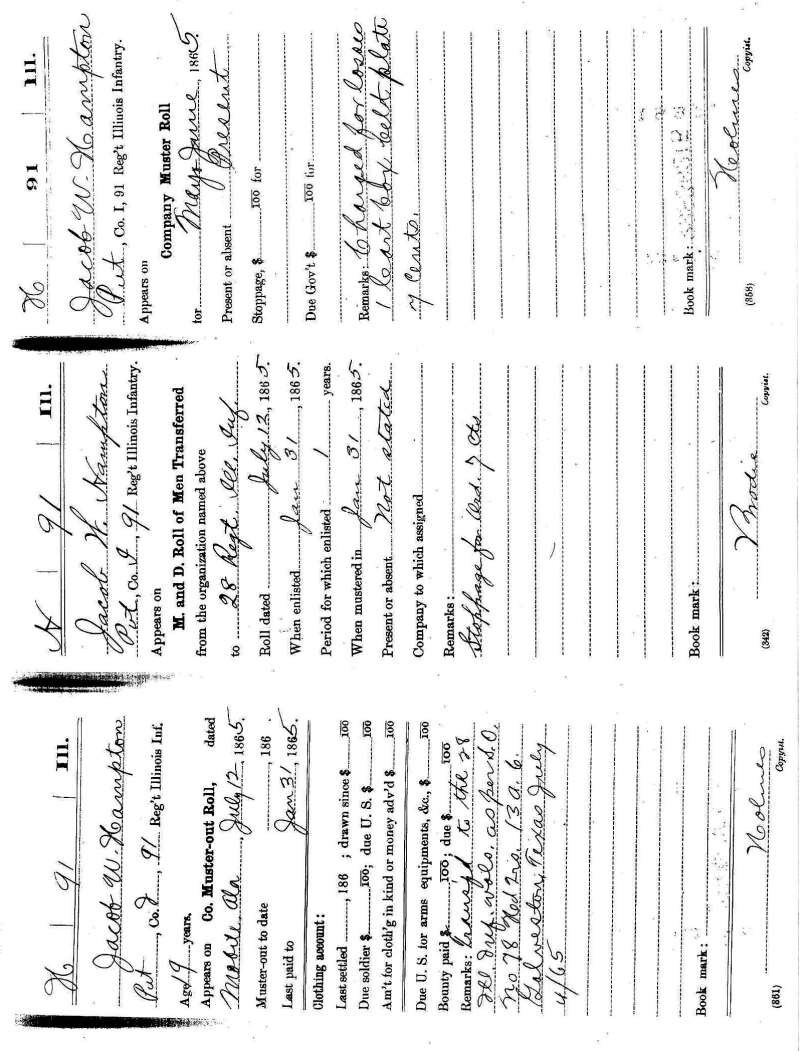 H | 91 | Ill.
Jacob W. Hampton
Pvt., Co. I, 91 Reg't Illinois Infantry.
Appears on
Company Muster Roll
for May & June, 1865.
Present or absent Present
Stoppage, $ 100 for
Due Gov't $ 100 for
Remarks: Charged for losses
1 Cart box belt plate
7 cents.
Book mark:
Holmes
(358) Copyist.
H | 91 | Ill.
Jacob W. Hampton
Pvt., Co. I, 91 Reg't Illinois Infantry.
Appears on
M. and D. Roll of Men Transferred
from the organization named above
to 28 Regt. Ill. Inf.
Roll dated July 12, 1865.
When enlisted Jan 31, 1865.
Period for which enlisted 1 years.
When mustered in Jan 31, 1865.
Present or absent Not stated
Company to which assigned
Remarks:
Stoppage for Ord. 7 Cts
Book mark:
Brodie
(342) Copyist.
H | 91 | Ill.
Jacob W. Hampton
Pvt, Co. I, 91 Reg't Illinois Inf.
Age 19 years.
Appears on Co. Muster-out Roll, dated
Mobile Ala, July 12, 1865.
Muster-out to date , 186 .
Last paid to Jan 31, 1865.
Clothing account:
Last settled , 186 ; drawn since $ 100
Due soldier $ 100; due U. S. $ 100
Am't for cloth'g in kind or money adv'd $ 100
Due U. S. for arms equipments, &c., $ 100
Bounty paid $ 100; due $ 100
Remarks: Transf'd to the 28
Ill. Inf. vols. as per S.O.
No 78 Hd Qrs. 13 A. C.
Galveston, Texas July
4/65
Book mark:
Holmes
(861) Copyist.